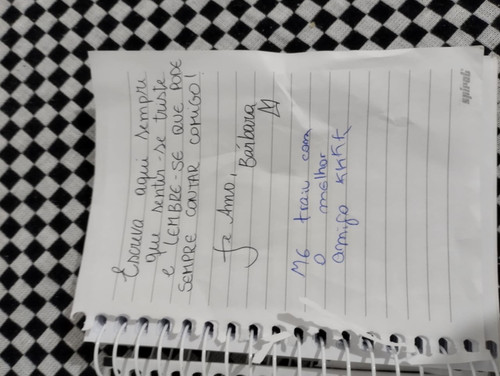 Escreva aqui sempre
que sentir-se triste
e LEMBRE-SE QUE PODE
SEMPRE CONTAR COMIGO!
Te Amo,
Bárbara
Me traiu com
o melhor
amigo KKKK
spiral